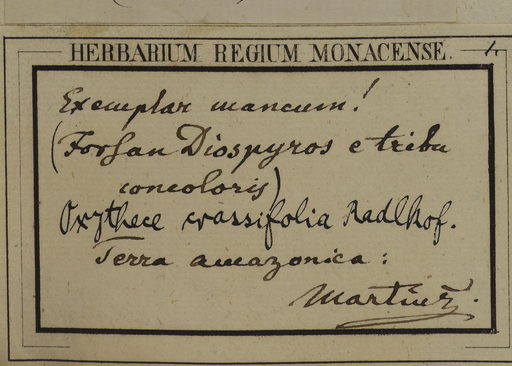 HERBARIUM REGIUM MONACENSE. 1.
Exemplar mancum!
(Forsan Diospyros e tribu
concoloris)
Oxythece crassifolia Radlkof.
Terra amazonica:
Martius.